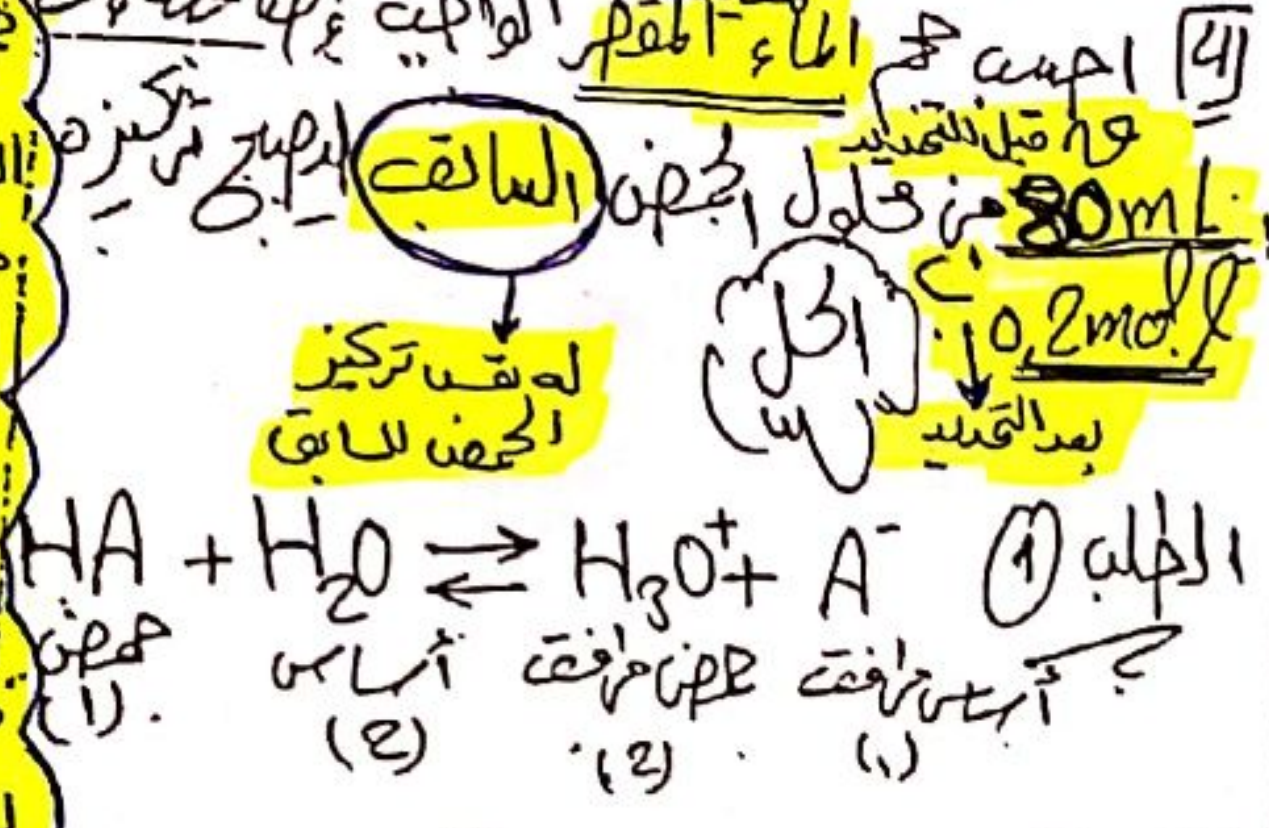 4 احسب حجم الماء المقطر الواجب
قبل التمديد
80mL من محلول الحمض السابق ليصبح تركيزه
0,2mol.l
بعد التمديد
له نفس تركيز
الحمض السابق
الحل
الطلب 1 HA + H₂O ⇌ H₃O⁺ + A⁻
حمض أساس حمض مرافق أساس مرافق
(1) (2) (2) (1)